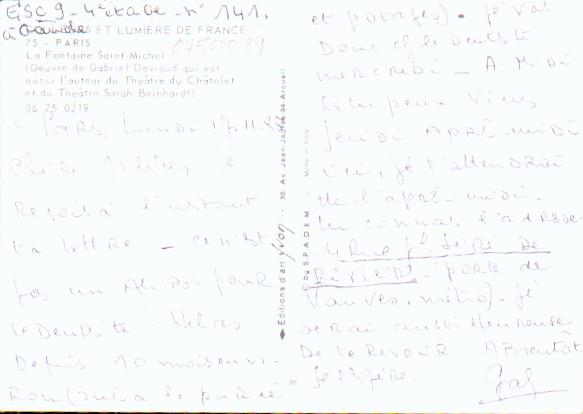 ESC 9 - 4e étage - n° 141.
à Gauche
ET LUMIERE DE FRANCE
75 - PARIS
La Fontaine Saint-Michel
(Oeuvre de Gabriel Davioud qui est
aussi l'auteur du Théatre du Châtelet
et du Théâtre Sarah Bernhardt)
36 75 0219
Paris, Lundi
Chère je
Reçois à l'instant
ta lettre - ce n'est
pas un pour
le Dentiste. Hélas
Depuis 10 mois envi-
Ron à la purée
Editions d'art yvon - 30, Av. Jean Jaurès 94 Arcueil
© by S.P.A.D.E.M. - Made in
et potages). je vais
Donc chez le Dentiste
mercredi - A Midi
Si tu peux viens
jeudi APRÈS-midi
ici, je t'attendrai
de l'après-midi.
Tu connais l'adresse
4 Rue Séré de
RiviÈRE - porte de
Vanves, métro). je
serai aussi Heureuse
De te Revoir ABientôt
je l'espère.